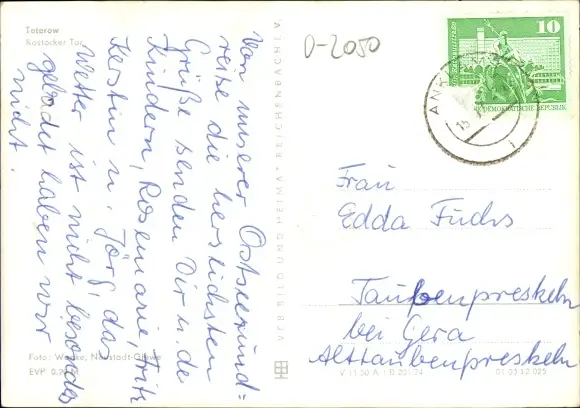 Teterow
Rostocker Tor
Von unserer Ostseerund=
reise die herzlichsten
Grüße senden Dir u. de
Kindern, Rosemarie, Fritz
Kerstin u. Jörg, das
Wetter ist nicht besonders
gebadet haben wir
nicht.
Foto: Worbe, Neustadt-Glewe
EVP 0,20
VEB BILD UND HEIMAT REICHENBACH I. V.
V 11 50 A 1 B 201/74
01 03 12 025
D-2050
10
DEMOKRATISCHE REPUBLIK
ANKLAM
Frau
Edda Fuchs
Taubenpreskeln
bei Gera
Alttaubenpreskeln